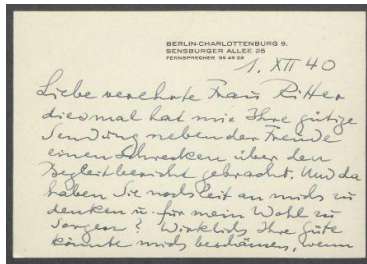 BERLIN-CHARLOTTENBURG 9.
SENSBURGER ALLEE 25
FERNSPRECHER 99 49 29
1. XII 40
Liebe verehrte Frau Ritter
diesmal hat mir Ihre gütige
Sendung neben der Freude
einen Schrecken über den
Begleitbericht gebracht. Und da
haben Sie noch Zeit an mich zu
denken u. für mein Wohl zu
sorgen? Wirklich Ihre Güte
könnte mich beschämen, wenn